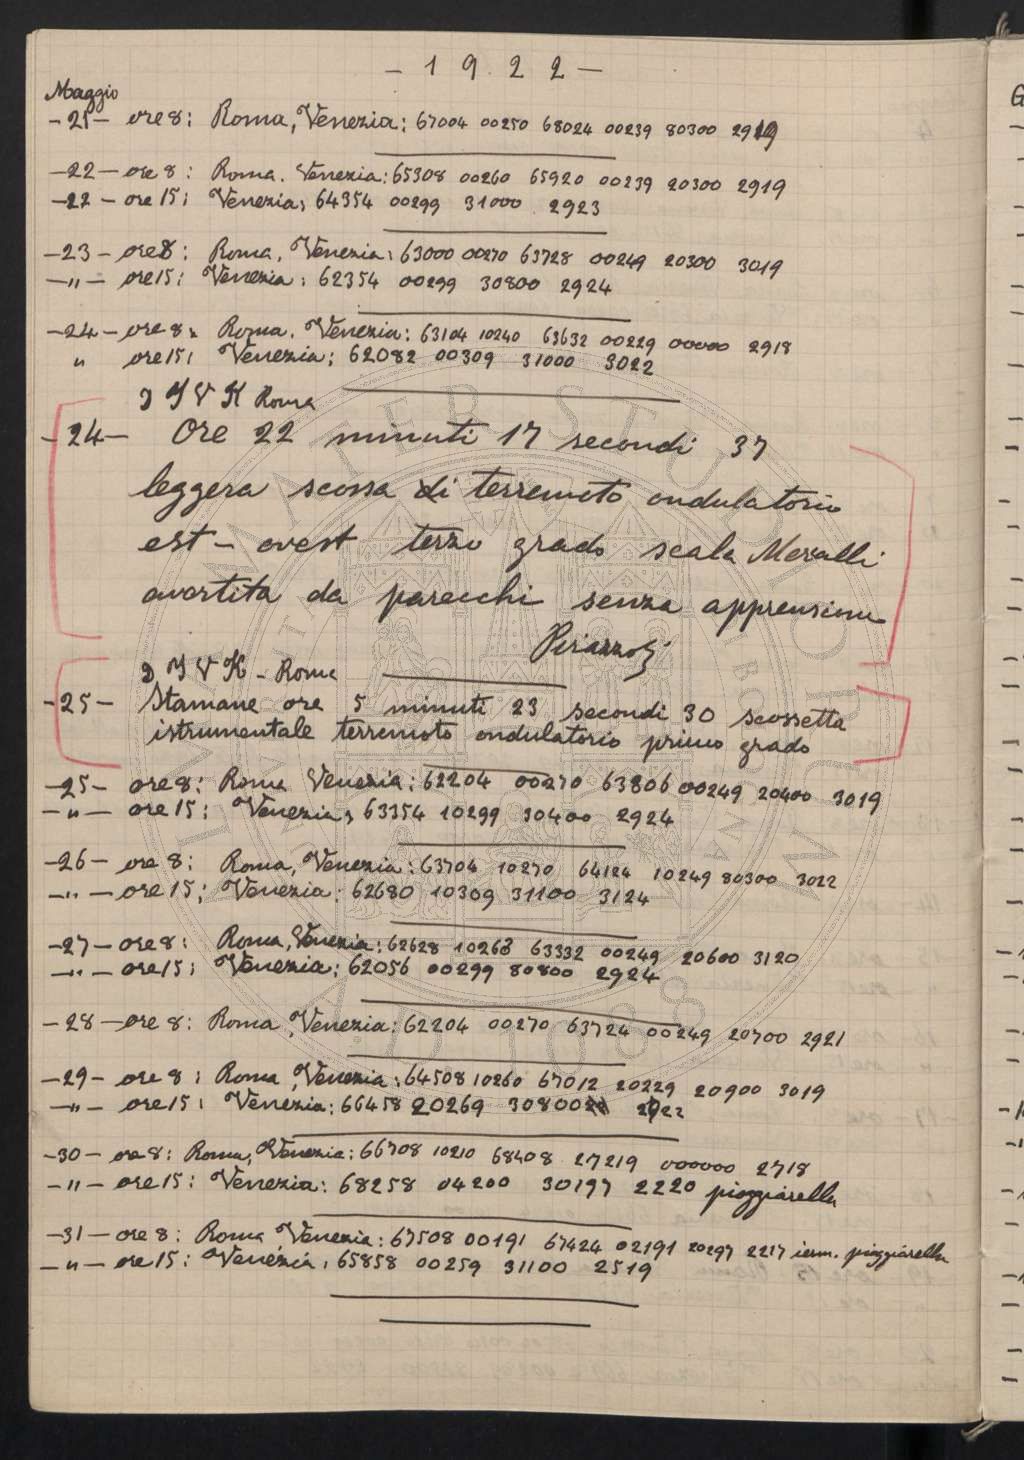 - 1 9 2 2 -
Maggio
-21- ore 8: Roma, Venezia: 67004 00250 68024 00239 80300 2919
-22- ore 8: Roma. Venezia: 65308 00260 65920 00239 20300 2919
-22- ore 15: Venezia, 64354 00299 31000 2923
-23- ore 8: Roma, Venezia: 63000 00270 63728 00249 20300 3019
-"- ore 15: Venezia: 62354 00299 30800 2924
-24- ore 8: Roma. Venezia: 63104 10240 63632 00229 00000 2918
" ore 15: Venezia: 62082 00309 31000 3022
Roma
-24- Ore 22 minuti 17 secondi 37
leggera scossa di terremoto ondulatorio
est-ovest terzo grado scala Mercalli
avvertita da parecchi senza apprensione
Roma
-25- Stamane ore 5 minuti 23 secondi 30 scossetta
istrumentale terremoto ondulatorio primo grado
-25- ore 8: Roma Venezia: 62204 00270 63806 00249 20400 3019
-"- ore 15: Venezia, 63354 10299 30400 2924
-26- ore 8: Roma, Venezia: 63704 10270 64124 10249 80300 3022
-"- ore 15: Venezia: 62680 10309 31100 3124
-27- ore 8: Roma, Venezia: 62628 10263 63332 00249 20600 3120
-"- ore 15: Venezia: 62056 00299 80800 2924
-28- ore 8: Roma, Venezia: 62204 00270 63724 00249 20700 2921
-29- ore 8: Roma, Venezia: 64508 10260 67012 20229 20900 3019
-"- ore 15: Venezia: 66458 20269 30800
-30- ore 8: Roma, Venezia: 66708 10210 68408 27219 000000 2718
-"- ore 15: Venezia: 68258 04200 30197 2220 pioggiarella
-31- ore 8: Roma Venezia: 67508 00191 67424 02191 20297 2217 pioggiarella
-"- ore 15: Venezia, 65858 00259 31100 2519